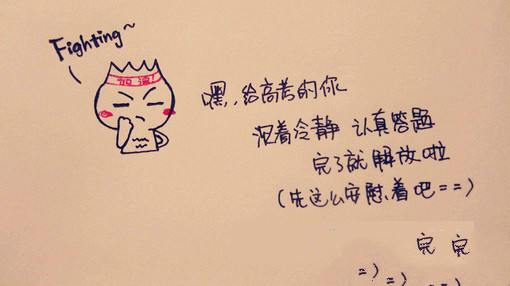 Fighting~
加油
嘿,给高考的你
沉着冷静 认真答题
完了就解放啦
(先这么安慰着吧==)
完 完
=)
=)
==)